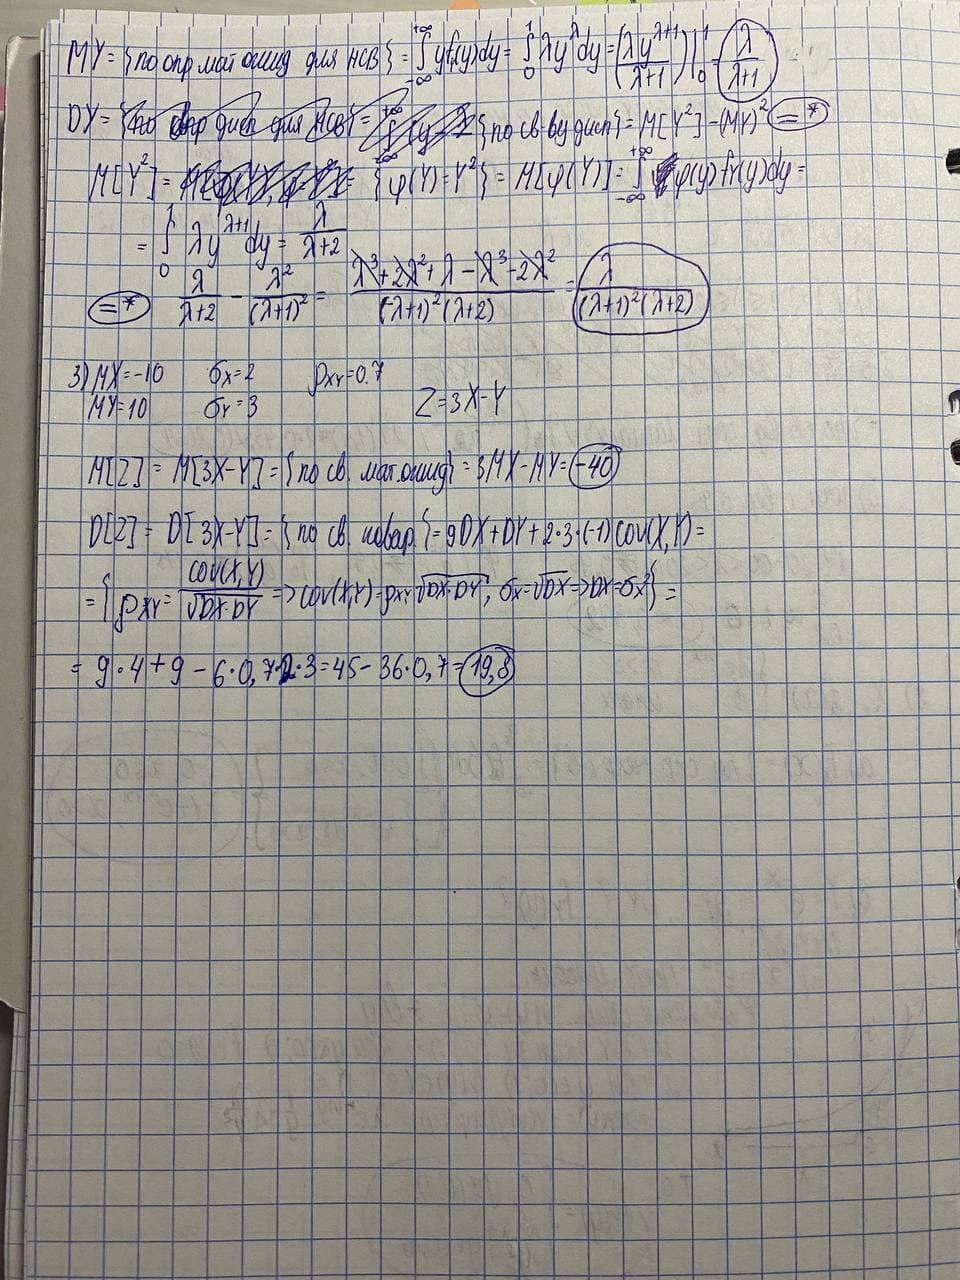 MY = {по опр. мат. ожид для НСВ} = ∫_{-∞}^{+∞} y f_Y(y)dy = ∫_0^1 λy^λ dy = (λy^{λ+1}/(λ+1))|_0^1 = λ/(λ+1)
DY = {по св-ву дисп} = M[Y²] - (MY)² =*
M[Y²] = {φ(Y)=Y²} = M[φ(Y)] = ∫_{-∞}^{+∞} φ(y) f_Y(y)dy =
= ∫_0^1 λy^{λ+1} dy = λ/(λ+2)
=* λ/(λ+2) - λ²/(λ+1)² = (λ³+2λ²+λ-λ³-2λ²)/((λ+1)²(λ+2)) = λ/((λ+1)²(λ+2))
3) MX=-10 σ_X=2 ρ_XY=0.7
MY=10 σ_Y=3 Z=3X-Y
M[Z] = M[3X-Y] = {по св. мат. ожид} = 3MX-MY = -40
D[Z] = D[3X-Y] = {по св. ковар.} = 9DX+DY+2·3·(-1)cov(X,Y) =
= {ρ_XY = cov(X,Y)/√(DX·DY) => cov(X,Y)=ρ_XY √(DX·DY); σ_X=√DX => DX=σ_X²} =
= 9·4+9-6·0,7·2·3=45-36·0,7=19,8